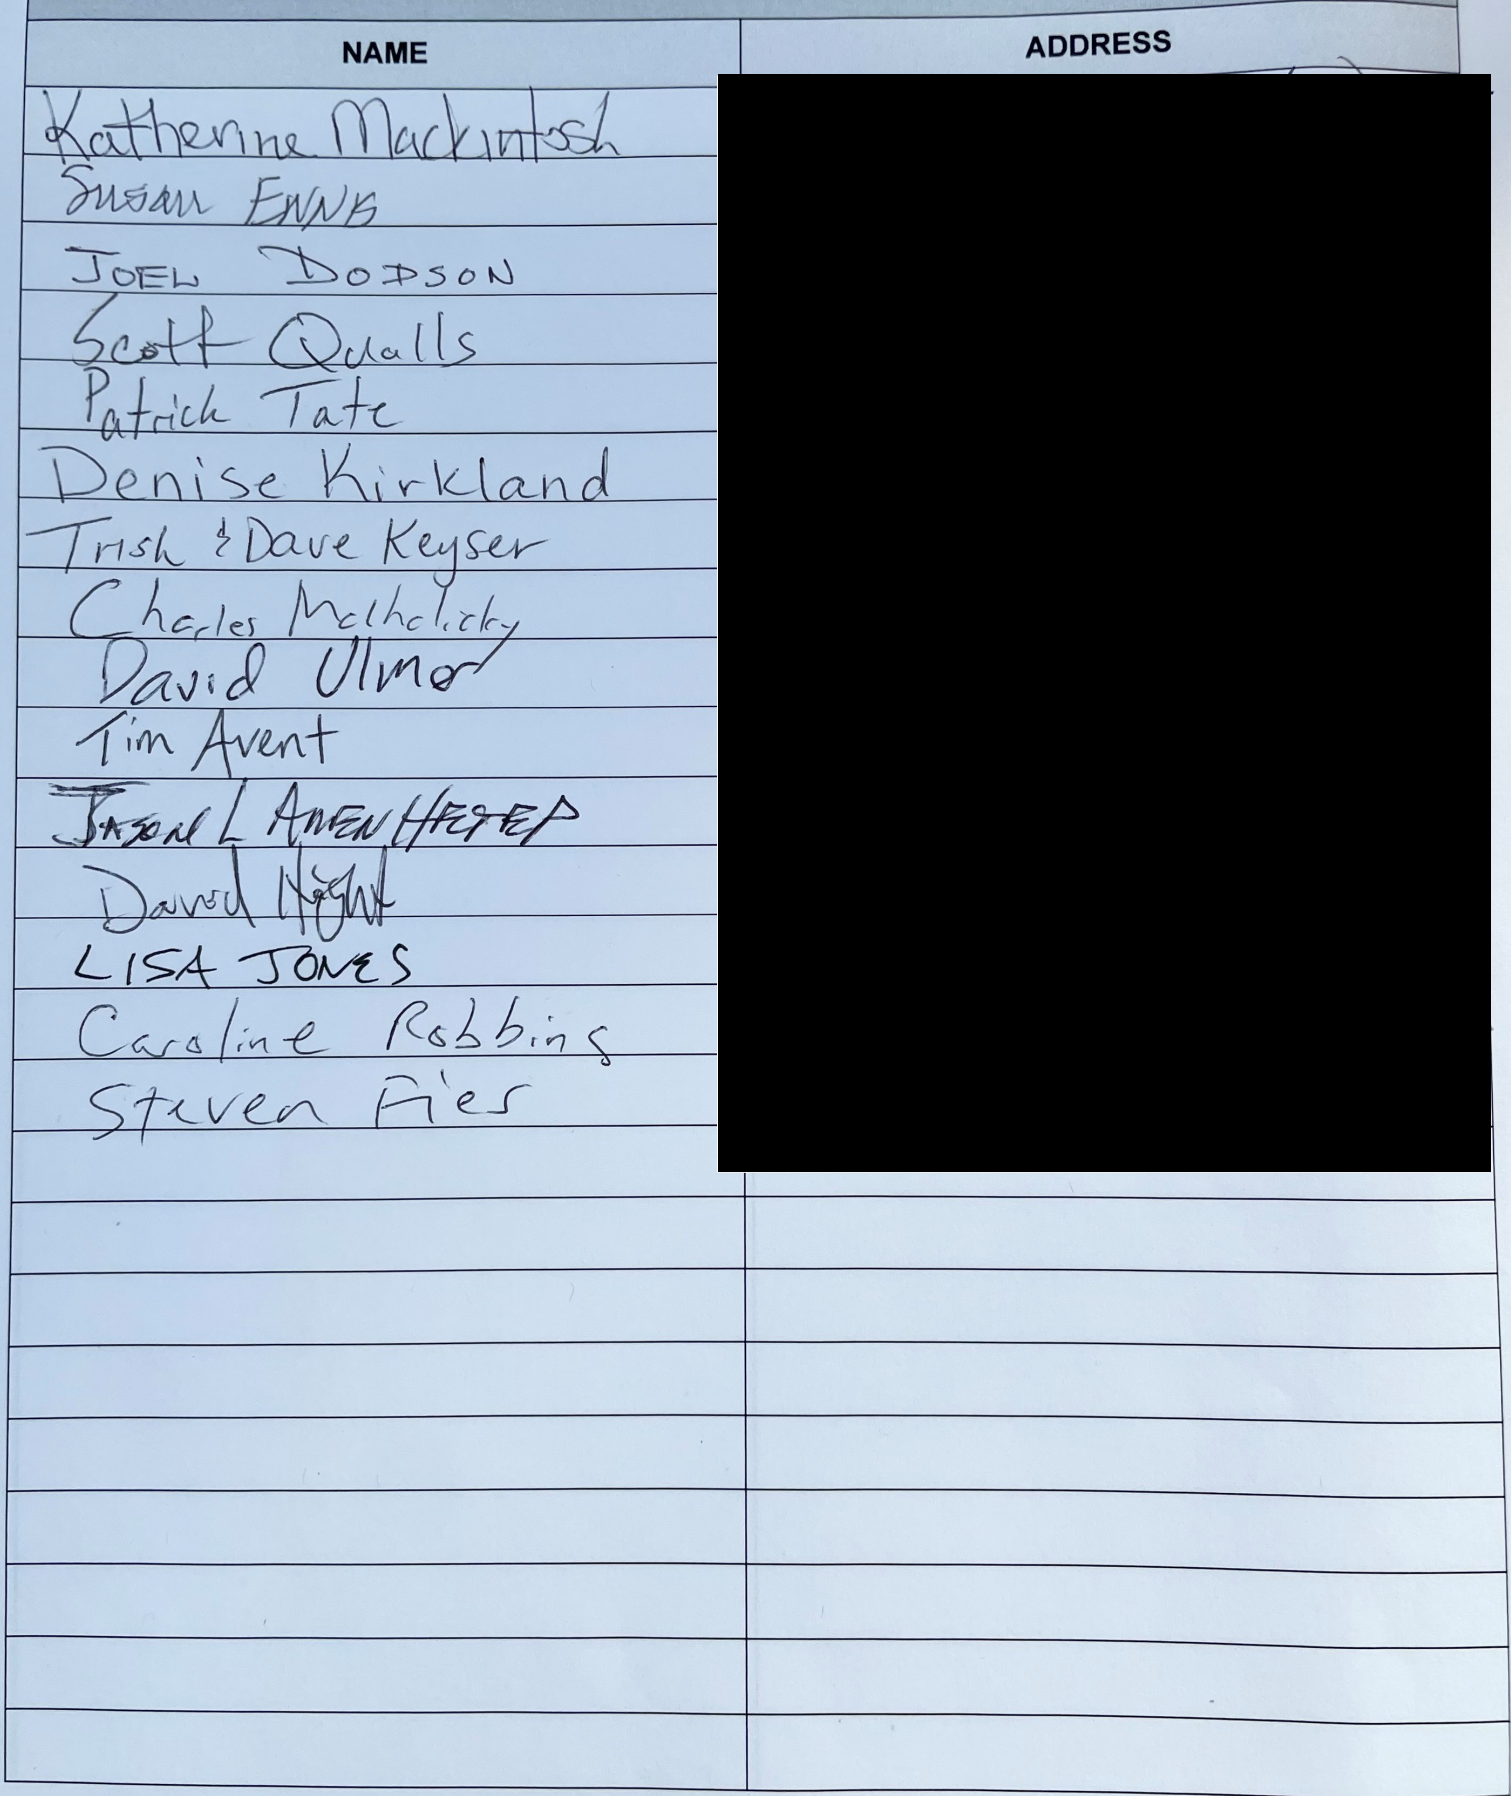 NAME ADDRESS
Katherine Mackintosh
Susan ENNIS
JOEL DODSON
Scott Qualls
Patrick Tate
Denise Kirkland
Trish & Dave Keyser
Charles
David Ulmer
Tim Avent
JASON L AMENHETEP
David Hight
LISA JONES
Caroline Robbins
Steven Fier